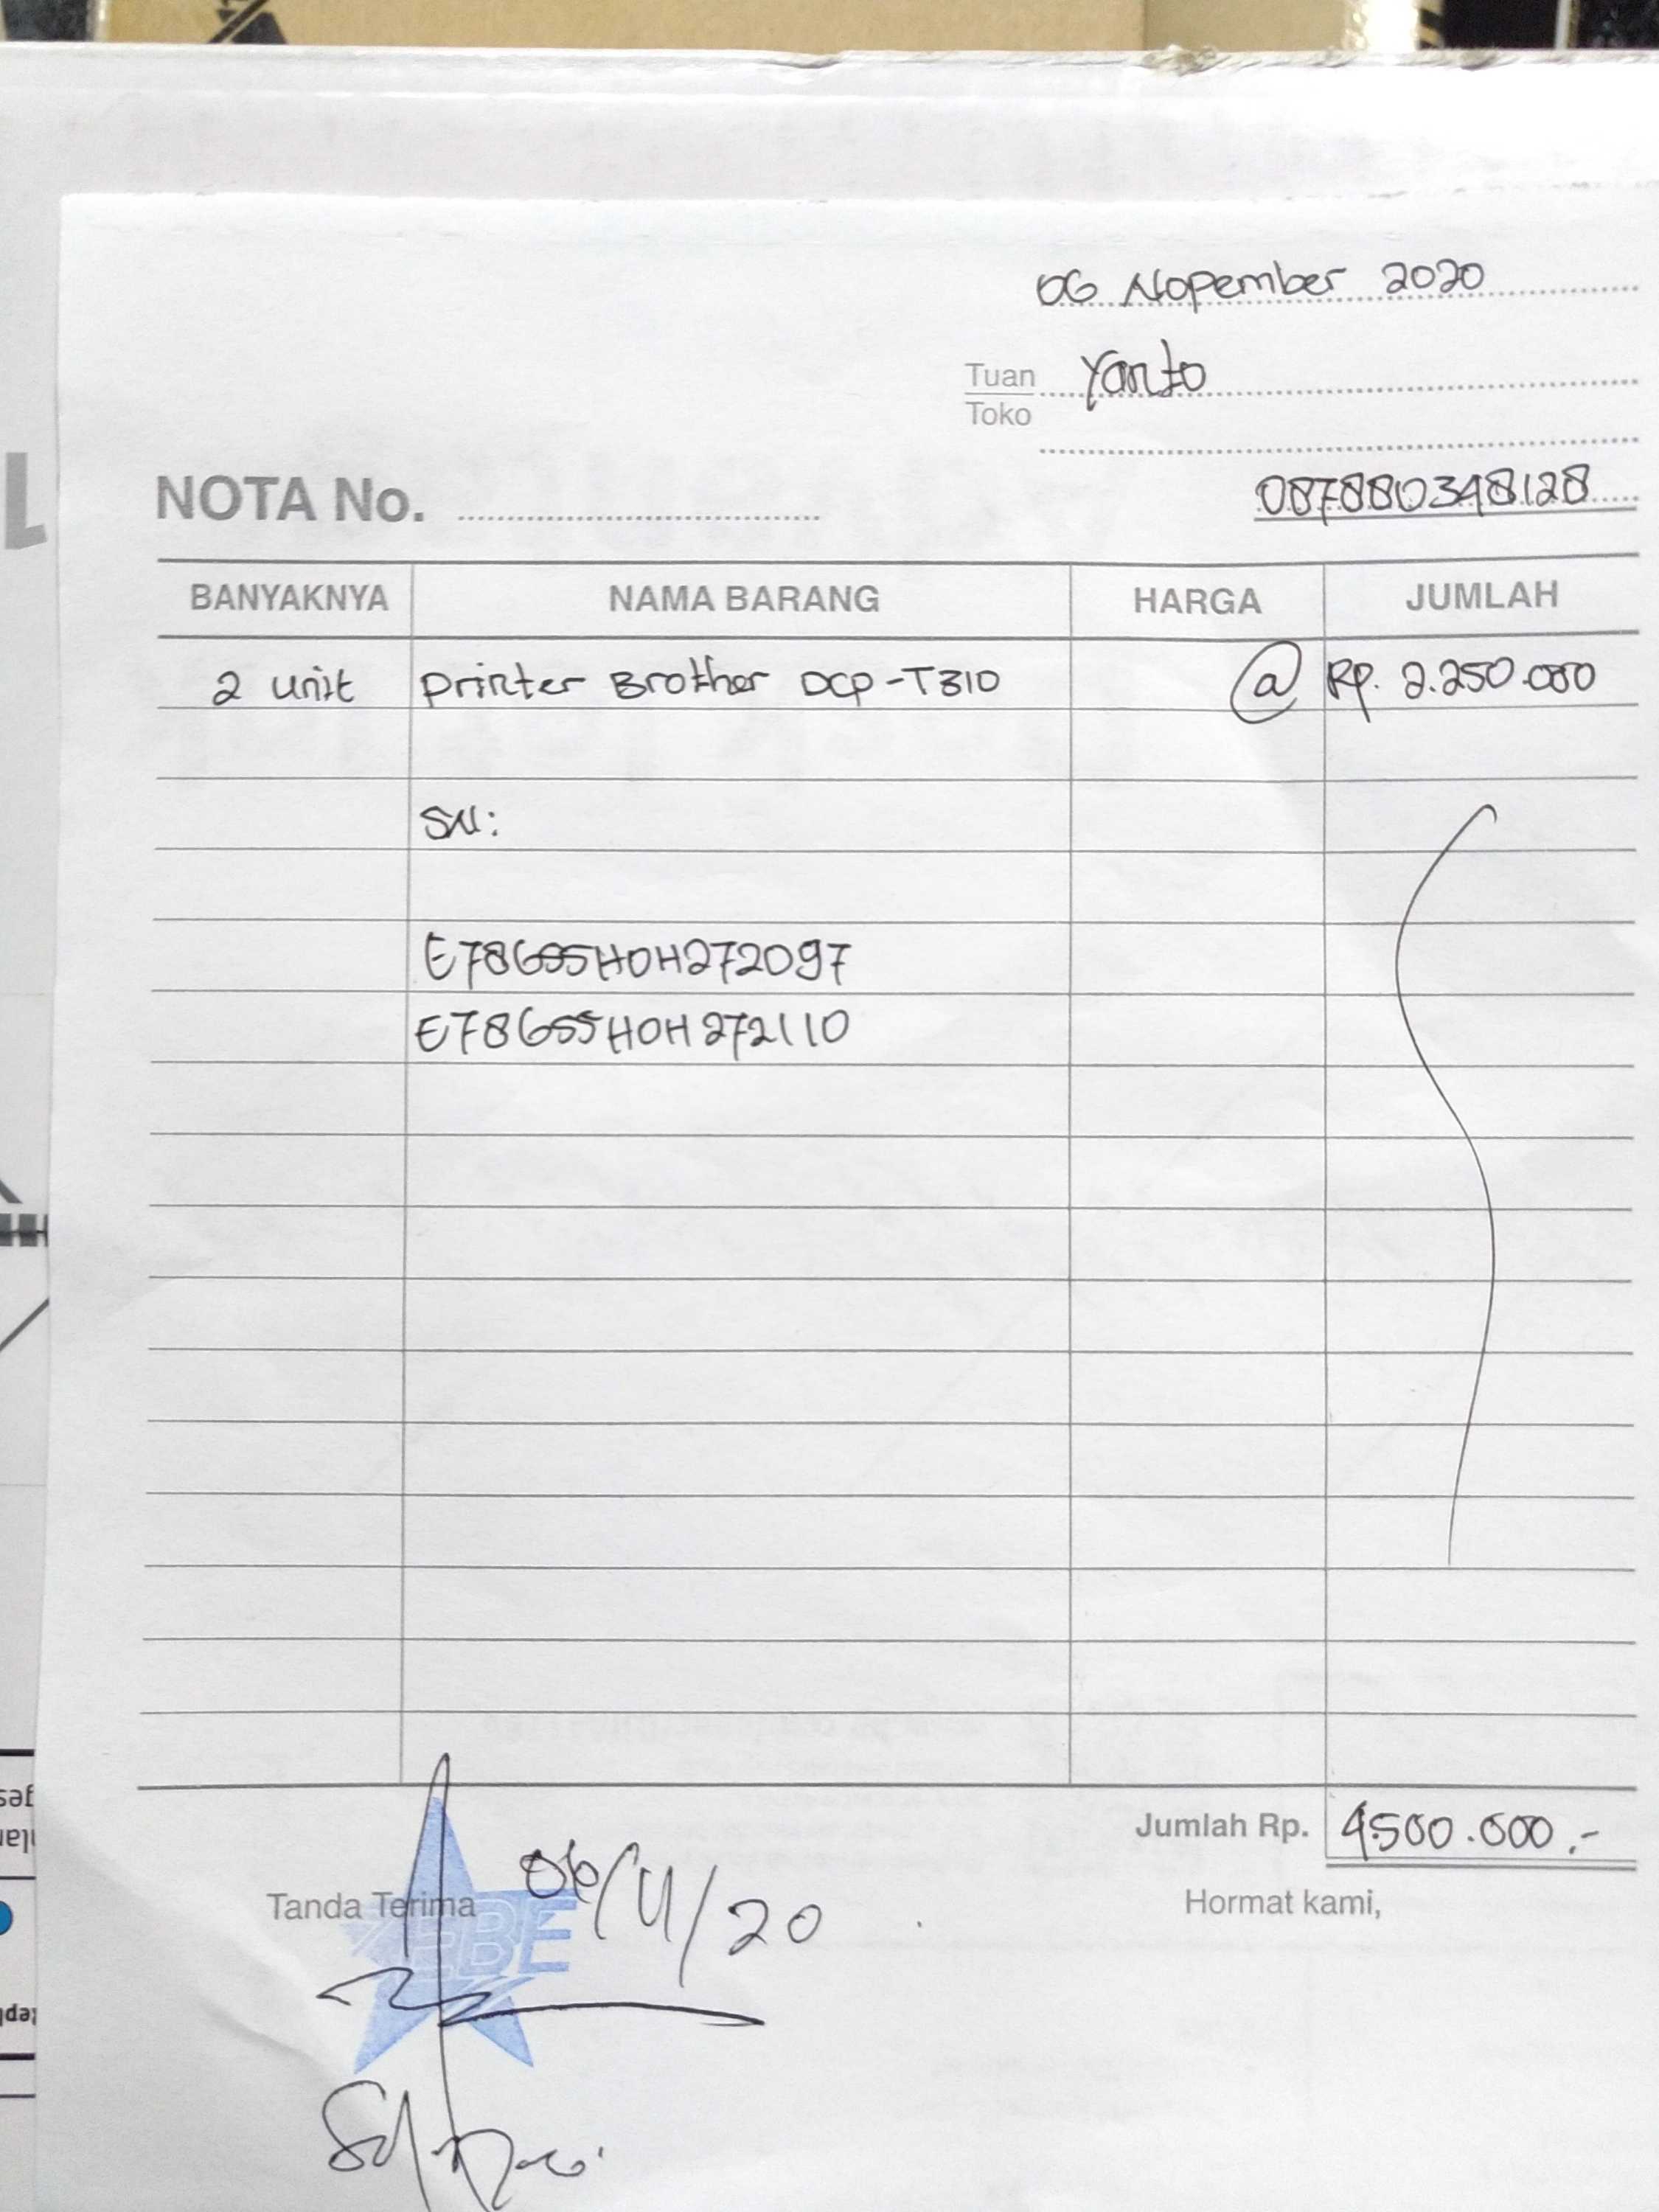 06 Nopember 2020
Tuan Yanto
Toko
NOTA No.
087880348128
BANYAKNYA NAMA BARANG HARGA JUMLAH
2 unit Printer Brother DCP-T310 @ Rp. 2.250.000
SN:
E78655H0H272097
E78655H0H272110
Jumlah Rp. 4.500.000,-
Tanda Terima 06/11/20
Hormat kami,
EBE